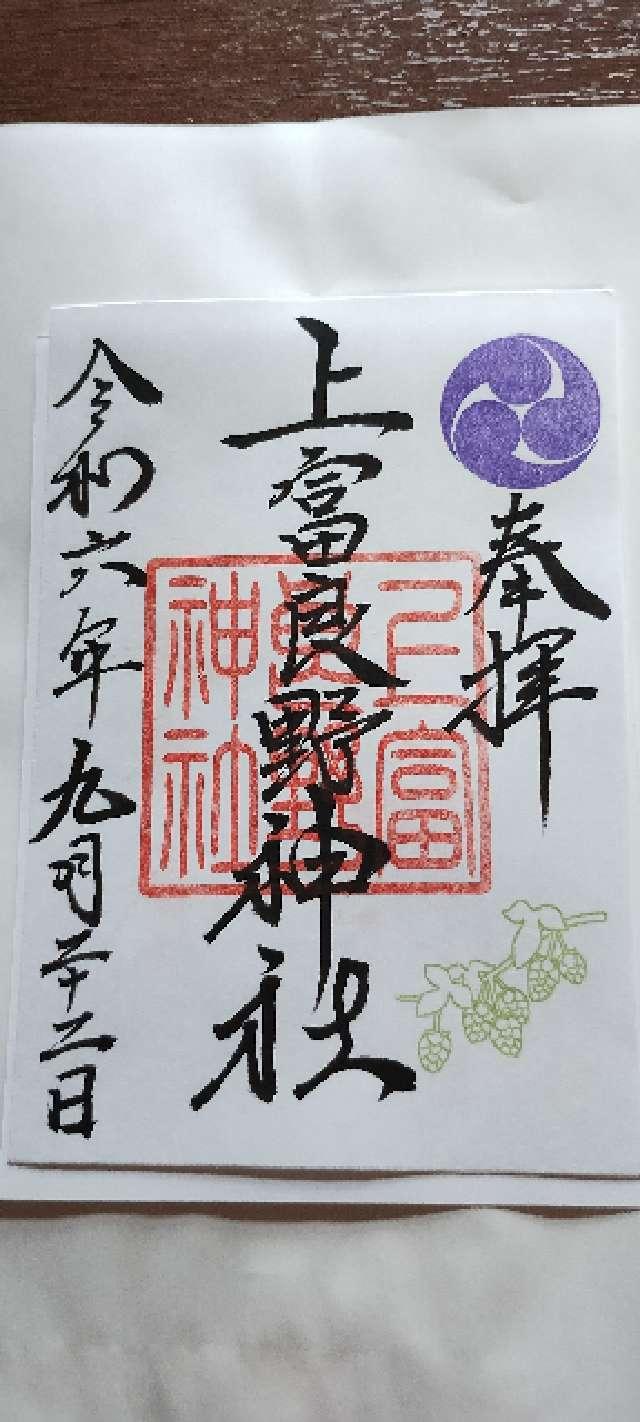 奉拝
上富良野神社
上富
良野
神社
令和六年九月二十二日